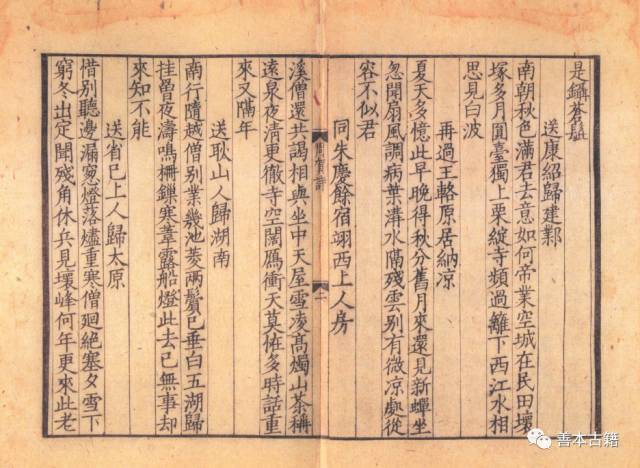 是鑷蒼髭
送康紹歸建鄴
南朝秋色滿君去意如何帝業空城在民田壞
塚多月圓臺獨上栗綻寺頻過籬下西江水相
思見白波
再過王輅原居納凉
夏天多憶此早晚得秋分舊月來還見新蟬坐
忽聞扇風調病葉溝水隔殘雲別有微凉處從
容不似君
同朱慶餘宿翊西上人房
周賀詩
二
溪僧還共謁相與坐中天屋雪凌高燭山茶稱
遠泉夜清更徹寺空闊鴈衝天莫恠多時話重
來又隔年
送耿山人歸湖南
南行隨越僧別業幾池菱兩鬢已垂白五湖歸
挂罾夜濤鳴柵鏁寒葦露船燈此去已無事却
來知不能
送省已上人歸太原
惜別聽邊漏窓燈落燼重寒僧廻絕塞夕雪下
窮冬出定聞殘角休兵見壞峰何年更來此老
善本古籍